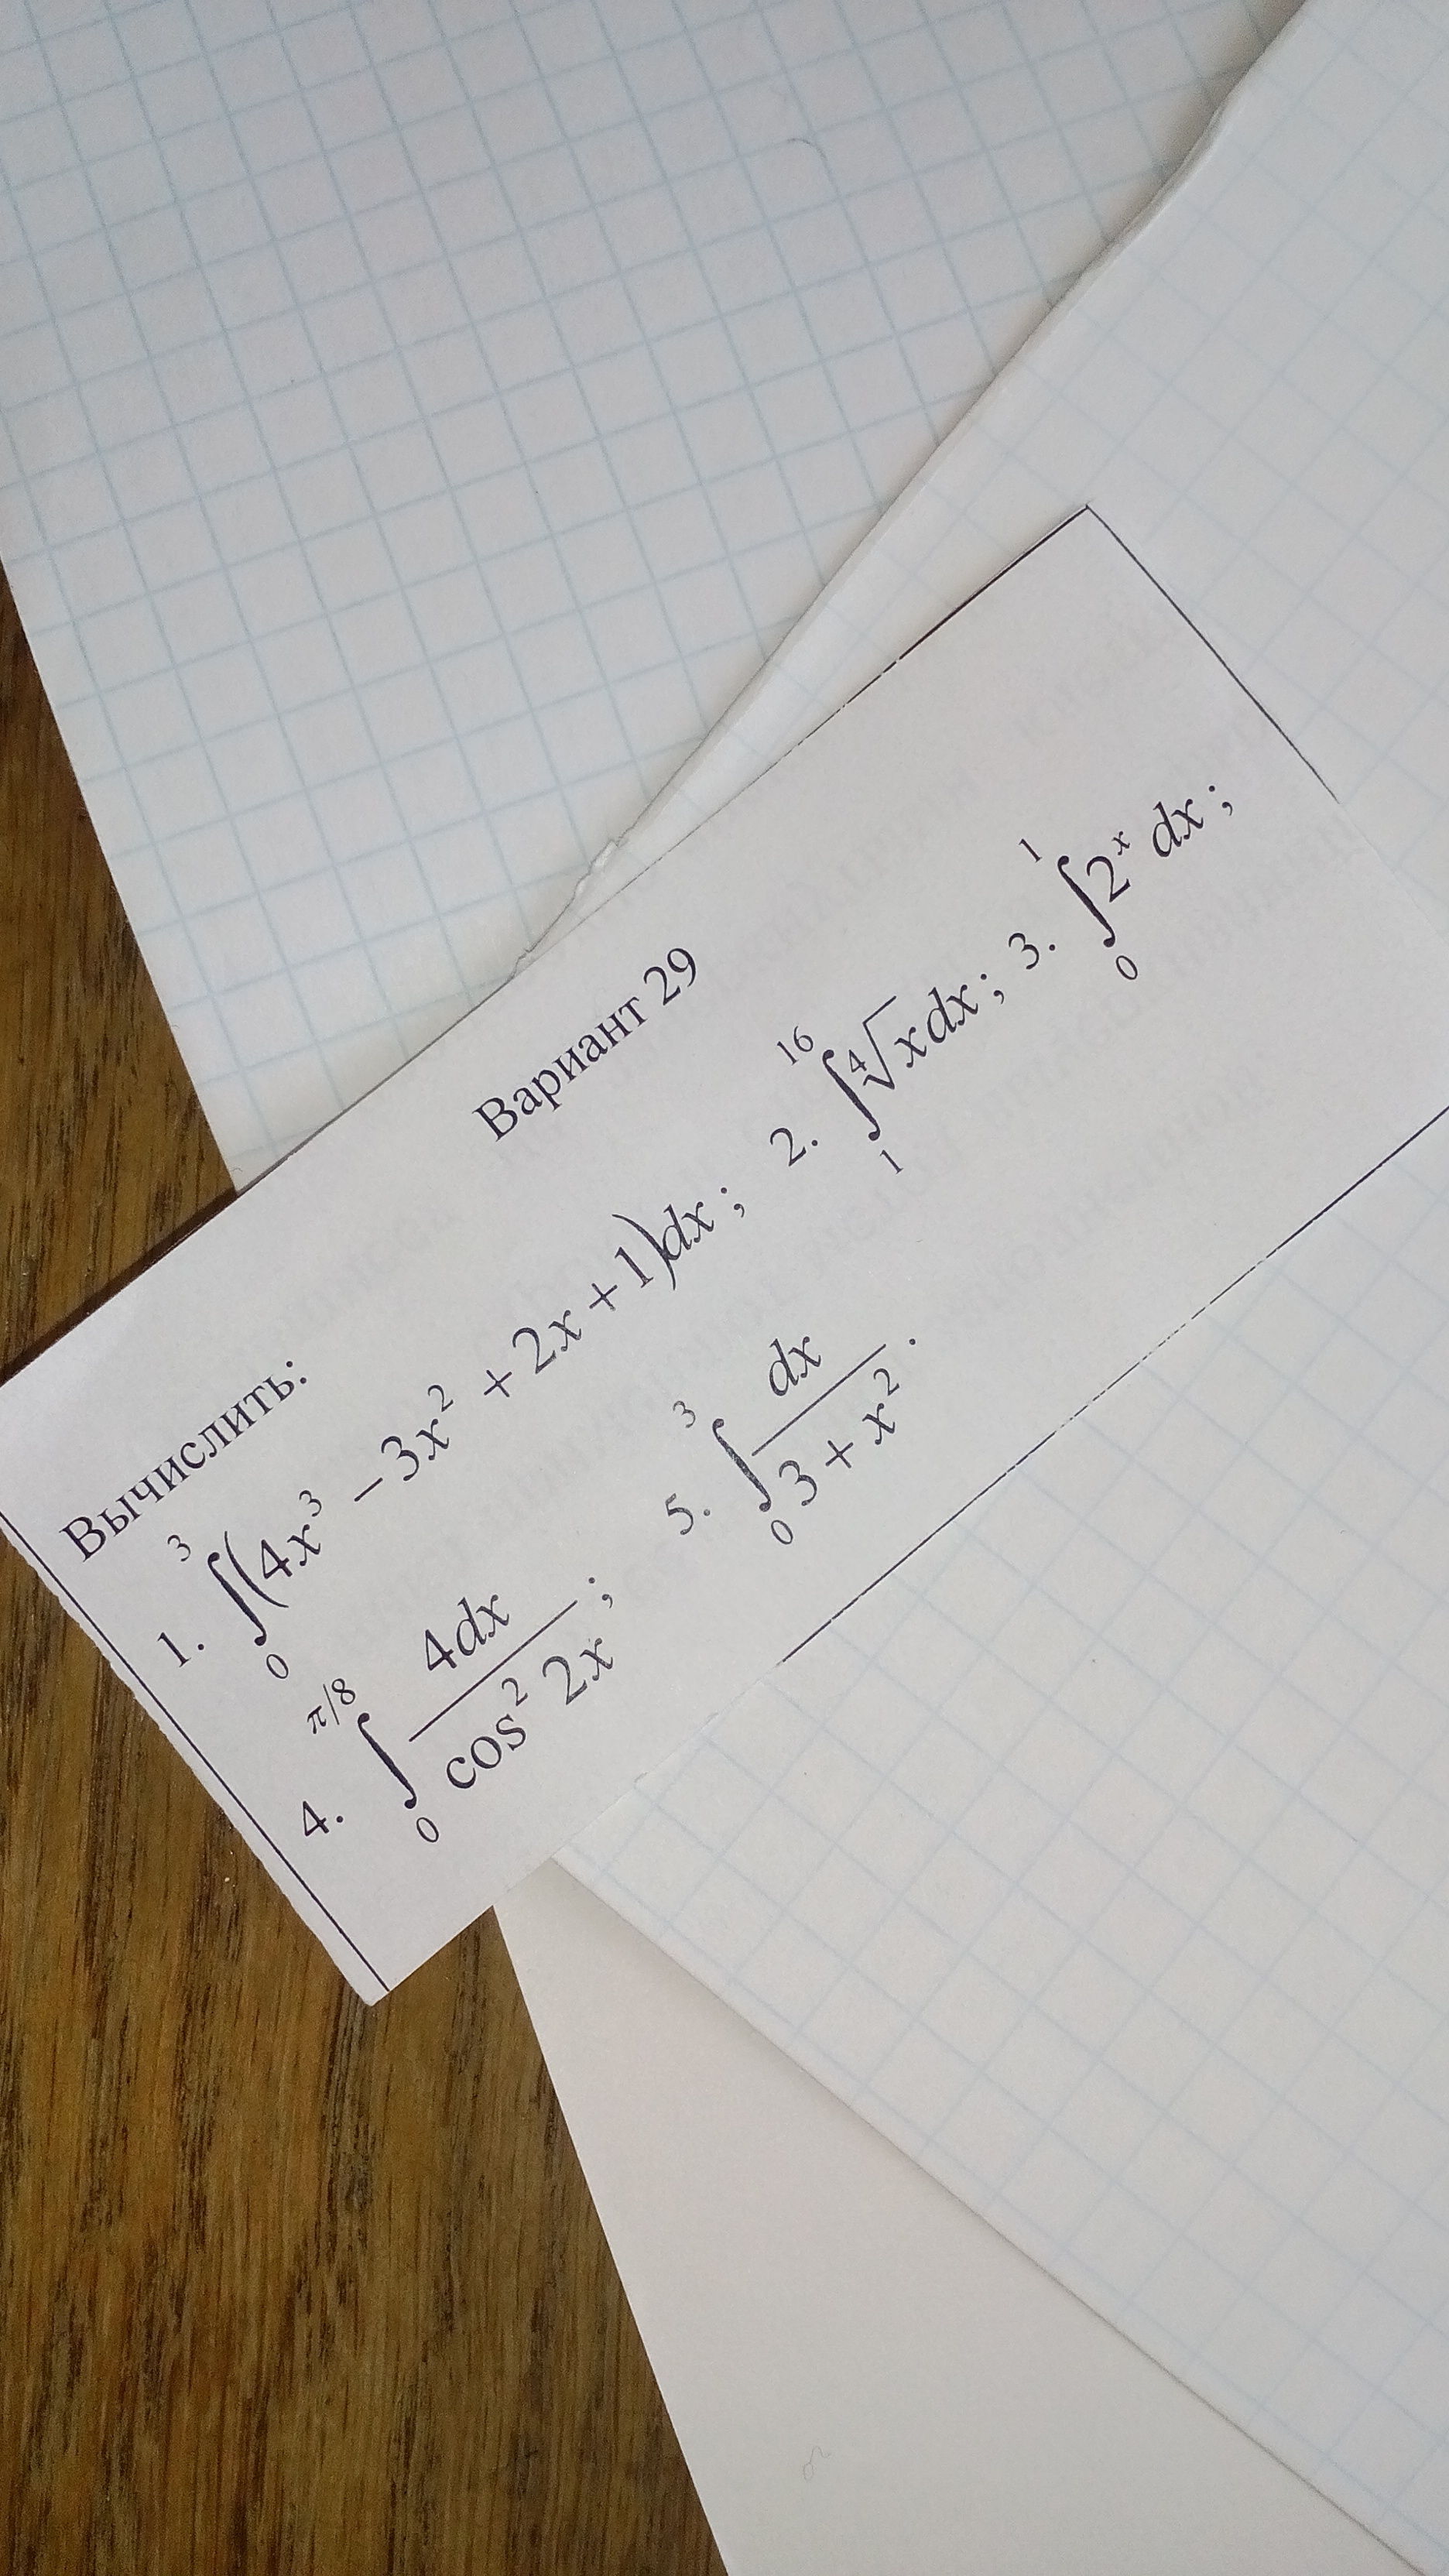 Вариант 29
Вычислить:
1. ∫₀³(4x³ − 3x² + 2x + 1)dx; 2. ∫₁¹⁶ ∜x dx; 3. ∫₀¹ 2ˣ dx;
4. ∫₀^(π/8) 4dx / cos² 2x; 5. ∫₀³ dx / (3 + x²).